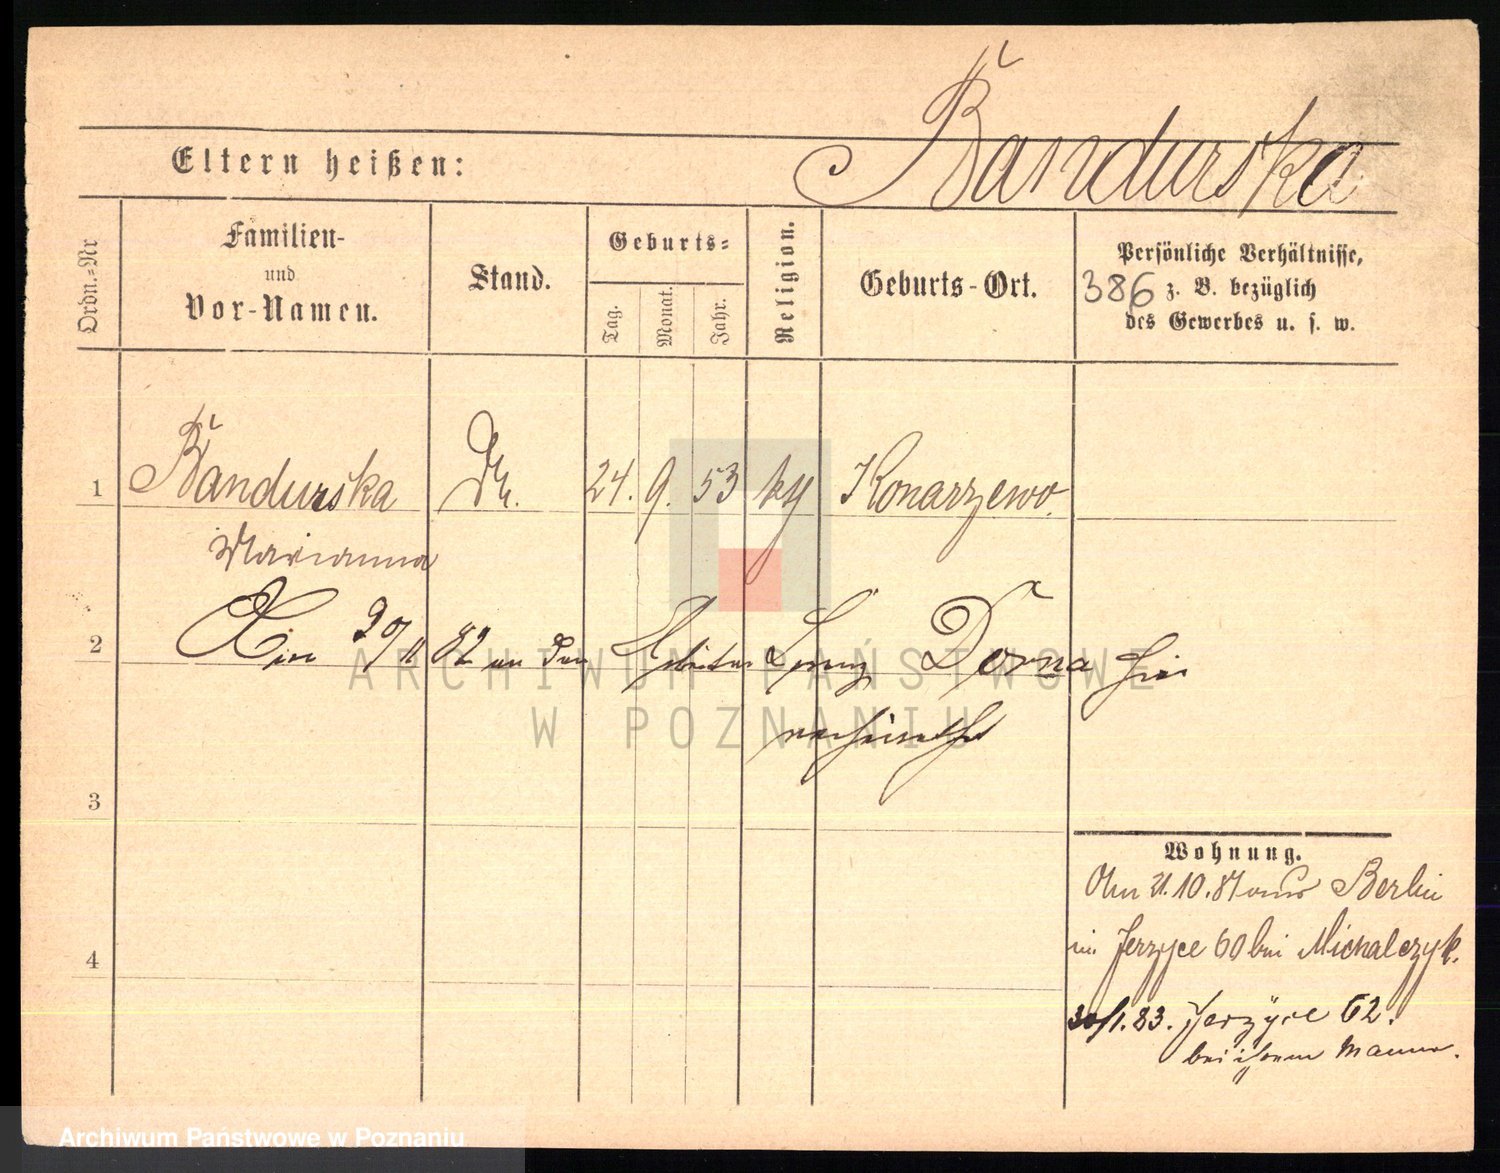 Bandurska
Eltern heißen:
Ordn.=Nr
Familien-
und
Vor-Namen.
Stand.
Geburts=
Tag.
Monat.
Jahr.
Religion.
Geburts-Ort.
Persönliche Verhältnisse,
386 z. B. bezüglich
des Gewerbes u. s. w.
1 Bandurska 24. 9. 53 kth Konarzewo.
Marianna
2 20/11 82 an den Arbeiter Lorenz Dorna hier
verheirathet
3
4
Wohnung.
Am 21.10.81 aus Berlin
in Jerzyce 60 bei Michalczyk.
30/1. 83. Jerzyce 62.
bei ihrem Manne.
ARCHIWUM PAŃSTWOWE
W POZNANIU
Archiwum Państwowe w Poznaniu